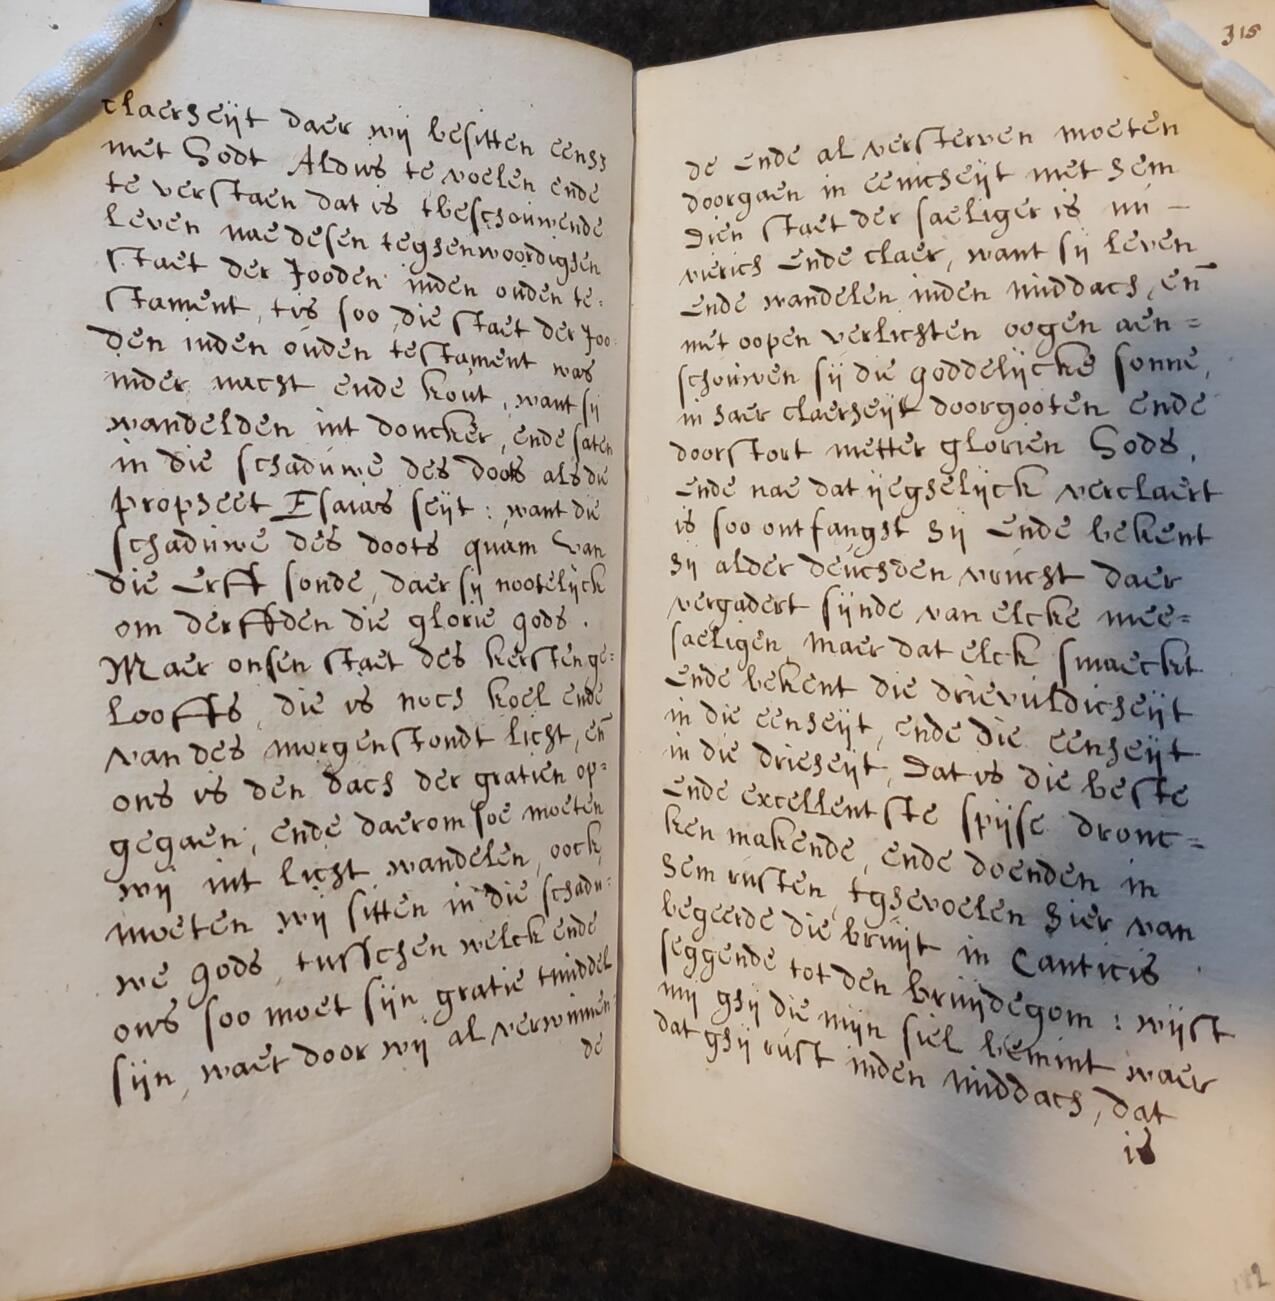 claerheijt daer wij besitten eenh
met Godt Aldus te voelen ende
te verstaen dat is tbeschouwende
leven nae desen teghenwoordighen
staet der Jooden inden ouden te:
stament, tis soo, die staet der Joo:
den inden ouden testament was
inder nacht ende kout, want sij
wandelden int doncker, ende saten
in die schaduwe des doots als die
propheet Esaias seijt: want die
schaduwe des doots quam van
die Erff sonde, daer sij nootelijck
om derffden die glorie gods.
Maer onsen staet des kersten ge:
looffs, die is noch koel ende
van des morgenstondt licht, eñ
ons is den dach der gratien op:
gegaen, ende daerom soe moeten
wij int licht wandelen, oock
moeten wij sitten in die schadu:
we gods, tusschen welck ende
ons soo moet sijn gratie tmiddel
sijn, waer door wij al verwinnen:
de
315
de ende al versterven moeten
doorgaen in eenicheijt met hem
Dien staet der saeliger is nu –
vierich ende claer, want sij leven
ende wandelen inden middach, eñ
met oopen verlichten oogen aen=
schouwen sij die goddelijcke sonne,
in haer claerheijt doorgooten ende
doorstort metter glorien Gods,
ende nae dat ijeghelijck verclaert
is soo ontfangt hij ende bekent
hij alder deuchden vrucht daer
vergadert sijnde van elcke mee=
saeligen, maer dat elck smaeckt
ende bekent die drievuldicheijt
in die eenheijt, ende die eenheijt
in die drieheijt, Dat is die beste
ende excellentste spijse dronc=
ken makende, ende doenden in
hem rusten, tghevoelen hier van
begeerde die bruijt in Canticis
seggende tot den bruijdegom: wijst
mij ghij die mijn siel bemint waer
dat ghij rust inden middach, dat
is